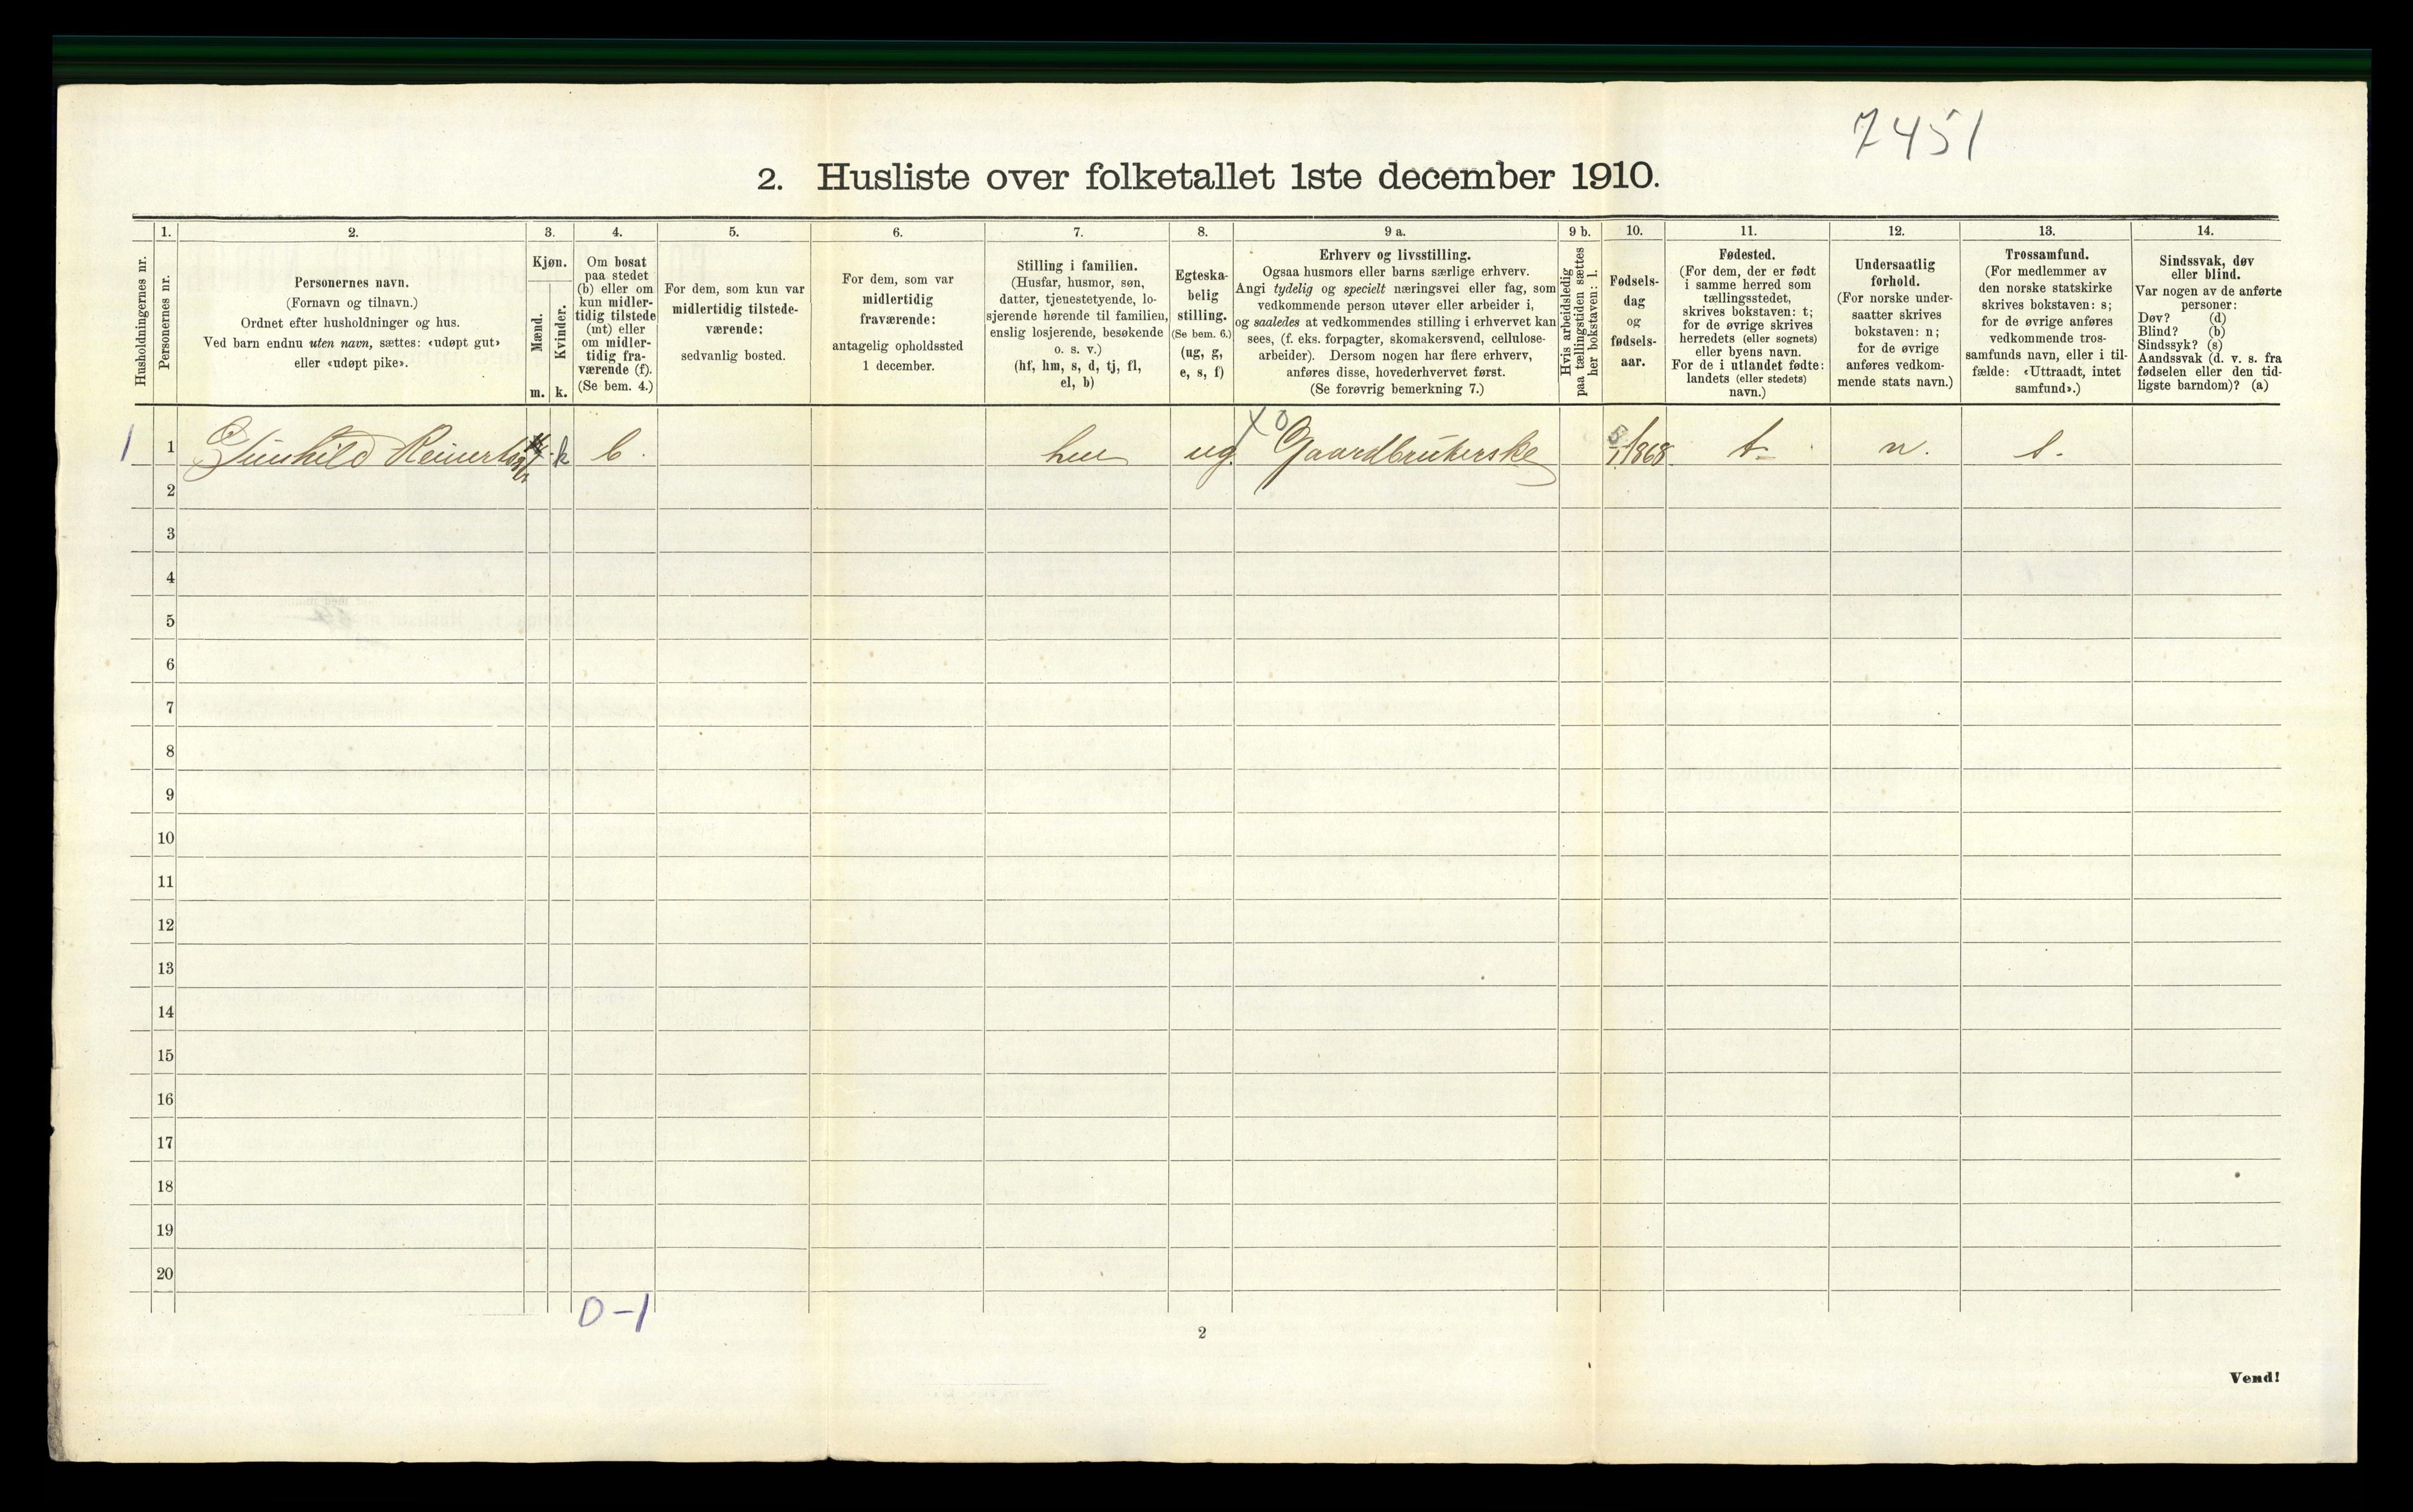 7451
2. Husliste over folketallet 1ste december 1910.
Husholdningernes nr.
1.
Personernes nr.
2.
Personernes navn.
(Fornavn og tilnavn.)
Ordnet efter husholdninger og hus.
Ved barn endnu uten navn, sættes: «udøpt gut»
eller «udøpt pike».
3.
Kjøn.
Mænd.
Kvinder.
m.
k.
4.
Om bosat
paa stedet
(b) eller om
kun midler-
tidig tilstede
(mt) eller
om midler-
tidig fra-
værende (f).
(Se bem. 4.)
5.
For dem, som kun var
midlertidig tilstede-
værende:
sedvanlig bosted.
6.
For dem, som var
midlertidig
fraværende:
antagelig opholdssted
1 december.
7.
Stilling i familien.
(Husfar, husmor, søn,
datter, tjenestetyende, lo-
sjerende hørende til familien,
enslig losjerende, besøkende
o. s. v.)
(hf, hm, s, d, tj, fl,
el, b)
8.
Egteska-
belig
stilling.
(Se bem. 6.)
(ug, g,
e, s, f)
9 a.
Erhverv og livsstilling.
Ogsaa husmors eller barns særlige erhverv.
Angi tydelig og specielt næringsvei eller fag, som
vedkommende person utøver eller arbeider i,
og saaledes at vedkommendes stilling i erhvervet kan
sees, (f. eks. forpagter, skomakersvend, cellulose-
arbeider). Dersom nogen har flere erhverv,
anføres disse, hovederhvervet først.
(Se forøvrig bemerkning 7.)
9 b.
Hvis arbeidsledig
paa tællingstiden sættes
her bokstaven: l.
10.
Fødsels-
dag
og
fødsels-
aar.
11.
Fødested.
(For dem, der er født
i samme herred som
tællingsstedet,
skrives bokstaven: t;
for de øvrige skrives
herredets (eller sognets)
eller byens navn.
For de i utlandet fødte:
landets (eller stedets)
navn.)
12.
Undersaatlig
forhold.
(For norske under-
saatter skrives
bokstaven: n;
for de øvrige
anføres vedkom-
mende stats navn.)
13.
Trossamfund.
(For medlemmer av
den norske statskirke
skrives bokstaven: s;
for de øvrige anføres
vedkommende tros-
samfunds navn, eller i til-
fælde: «Uttraadt, intet
samfund».)
14.
Sindssvak, døv
eller blind.
Var nogen av de anførte
personer:
Døv? (d)
Blind? (b)
Sindssyk? (s)
Aandssvak (d. v. s. fra
fødselen eller den tid-
ligste barndom)? (a)
1 1 Gunhild k b. hm ug. X0 Gaardbrukerske 5/1 1868 t n. s.
2
3
4
5
6
7
8
9
10
11
12
13
14
15
16
17
18
19
20
0-1
2
Vend!